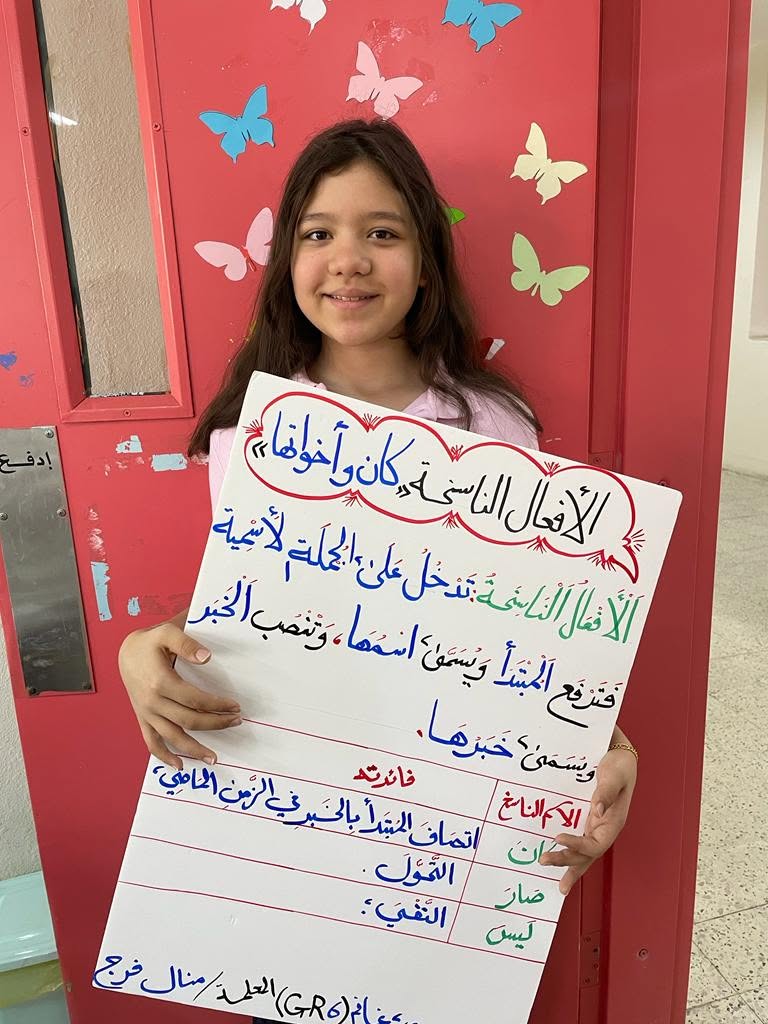 الأفعال الناسخة «كان وأخواتها»
اَلْأَفعَالُ اَلْنَاسِخَةُ: تَدْخُلُ عَلىٰ اَلجُملَةِ لأَسْمِية
فَتَرْفَع اَلْمُبْتَدَأ وَيُسَمَىٰ اسْمُهَا، وَتَنْصُب اَلْخَبَر
وَيُسَمَىٰ خَبَرُهَا.
الاسم الناسخ فائدته
كَانَ اتصَافَ المُبتَدأ بالخَبر في الزَّمنِ الماضِي
صَارَ التَّحَوّلَ.
لَيسَ النَّفْيَ
(GR6) المعلمة/ منال فرج
إدفع